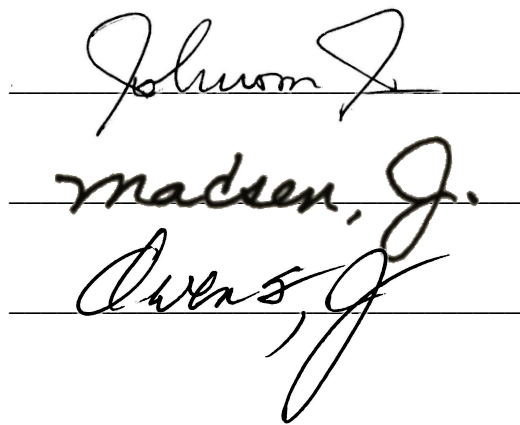 Johnson J.
Madsen, J.
Owens, J